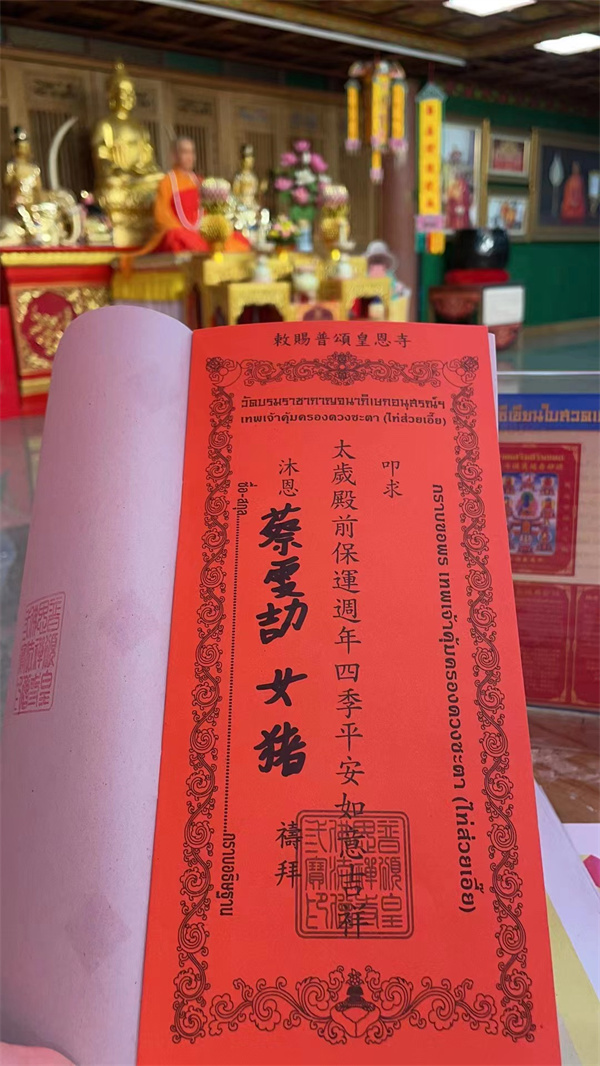 敕賜普頌皇恩寺
วัดบรมราชากาญจนาภิเษกอนุสรณ์ฯ
เทพเจ้าคุ้มครองดวงชะตา (ไท่ส่วยเอี้ย)
กราบขอพร เทพเจ้าคุ้มครองดวงชะตา (ไท่ส่วยเอี้ย)
叩求
太歲殿前保運週年四季平安如意吉祥
沐恩
蔡雯劼 女 猪
禱拜
ชื่อ-สกุล
กราบอธิษฐาน